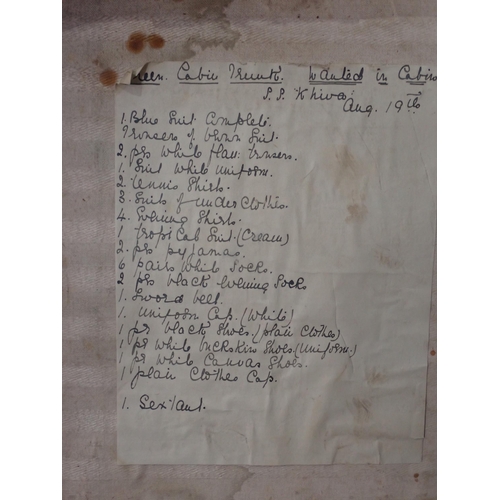 Green. Cabin Trunk. Wanted in Cabin
S.S. Khiva
Aug. 19th
1. Blue Suit Complete.
Trousers of brown Suit.
2. prs White flan: trousers.
1. Suit White Uniform.
2. Tennis Shirts.
3. Suits of under Clothes.
4. Evening Shirts.
1 Tropical Suit. (Cream)
2. prs pyjamas.
6 pairs White Socks.
2 prs black Evening Socks
1. Sword belt.
1. Uniform Cap. (White)
1 pr black Shoes. (plain Clothes)
1 pr White buckskin Shoes. (Uniform.)
1 pr White Canvas Shoes.
1 plain Clothes Cap.
1. Sextant.